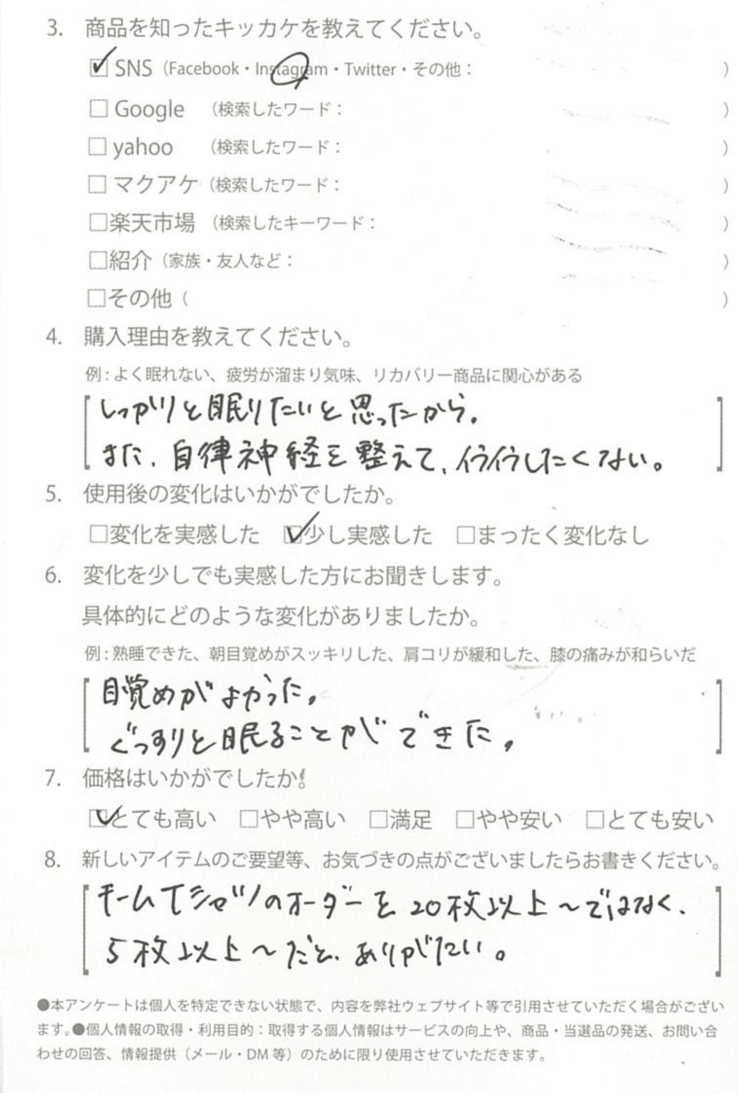 3. 商品を知ったキッカケを教えてください。
☑ SNS（Facebook・Instagram・Twitter・その他： ）
□ Google （検索したワード： ）
□ yahoo （検索したワード： ）
□ マクアケ（検索したワード： ）
□楽天市場 （検索したキーワード： ）
□紹介（家族・友人など： ）
□その他（ ）
4. 購入理由を教えてください。
例：よく眠れない、疲労が溜まり気味、リカバリー商品に関心がある
しっかりと眠りたいと思ったから。
また、自律神経を整えて、イライラしたくない。
5. 使用後の変化はいかがでしたか。
□変化を実感した ☑少し実感した □まったく変化なし
6. 変化を少しでも実感した方にお聞きします。
具体的にどのような変化がありましたか。
例：熟睡できた、朝目覚めがスッキリした、肩コリが緩和した、膝の痛みが和らいだ
目覚めがよかった。
ぐっすりと眠ることができた。
7. 価格はいかがでしたか。
☑とても高い □やや高い □満足 □やや安い □とても安い
8. 新しいアイテムのご要望等、お気づきの点がございましたらお書きください。
チームTシャツのオーダーを20枚以上〜ではなく、
5枚以上〜だと、ありがたい。
●本アンケートは個人を特定できない状態で、内容を弊社ウェブサイト等で引用させていただく場合がござい
ます。●個人情報の取得・利用目的：取得する個人情報はサービスの向上や、商品・当選品の発送、お問い合
わせの回答、情報提供（メール・DM 等）のために限り使用させていただきます。